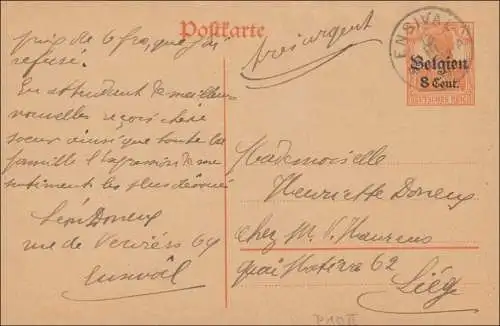 Postkarte
très urgent
ENSIVAL
Belgien
8 Cent.
DEUTSCHES REICH
prix de 6 frs, que j'ai
refusé.
En attendant de meilleures
nouvelles reçois chère
soeur ainsi que toute la
famille l'expression de mes
sentiments les plus dévoués
Léon Doneux
rue de Verviers 69
Ensival
Mademoiselle
Henriette Doneux
chez M. V.
quai 62
Liége